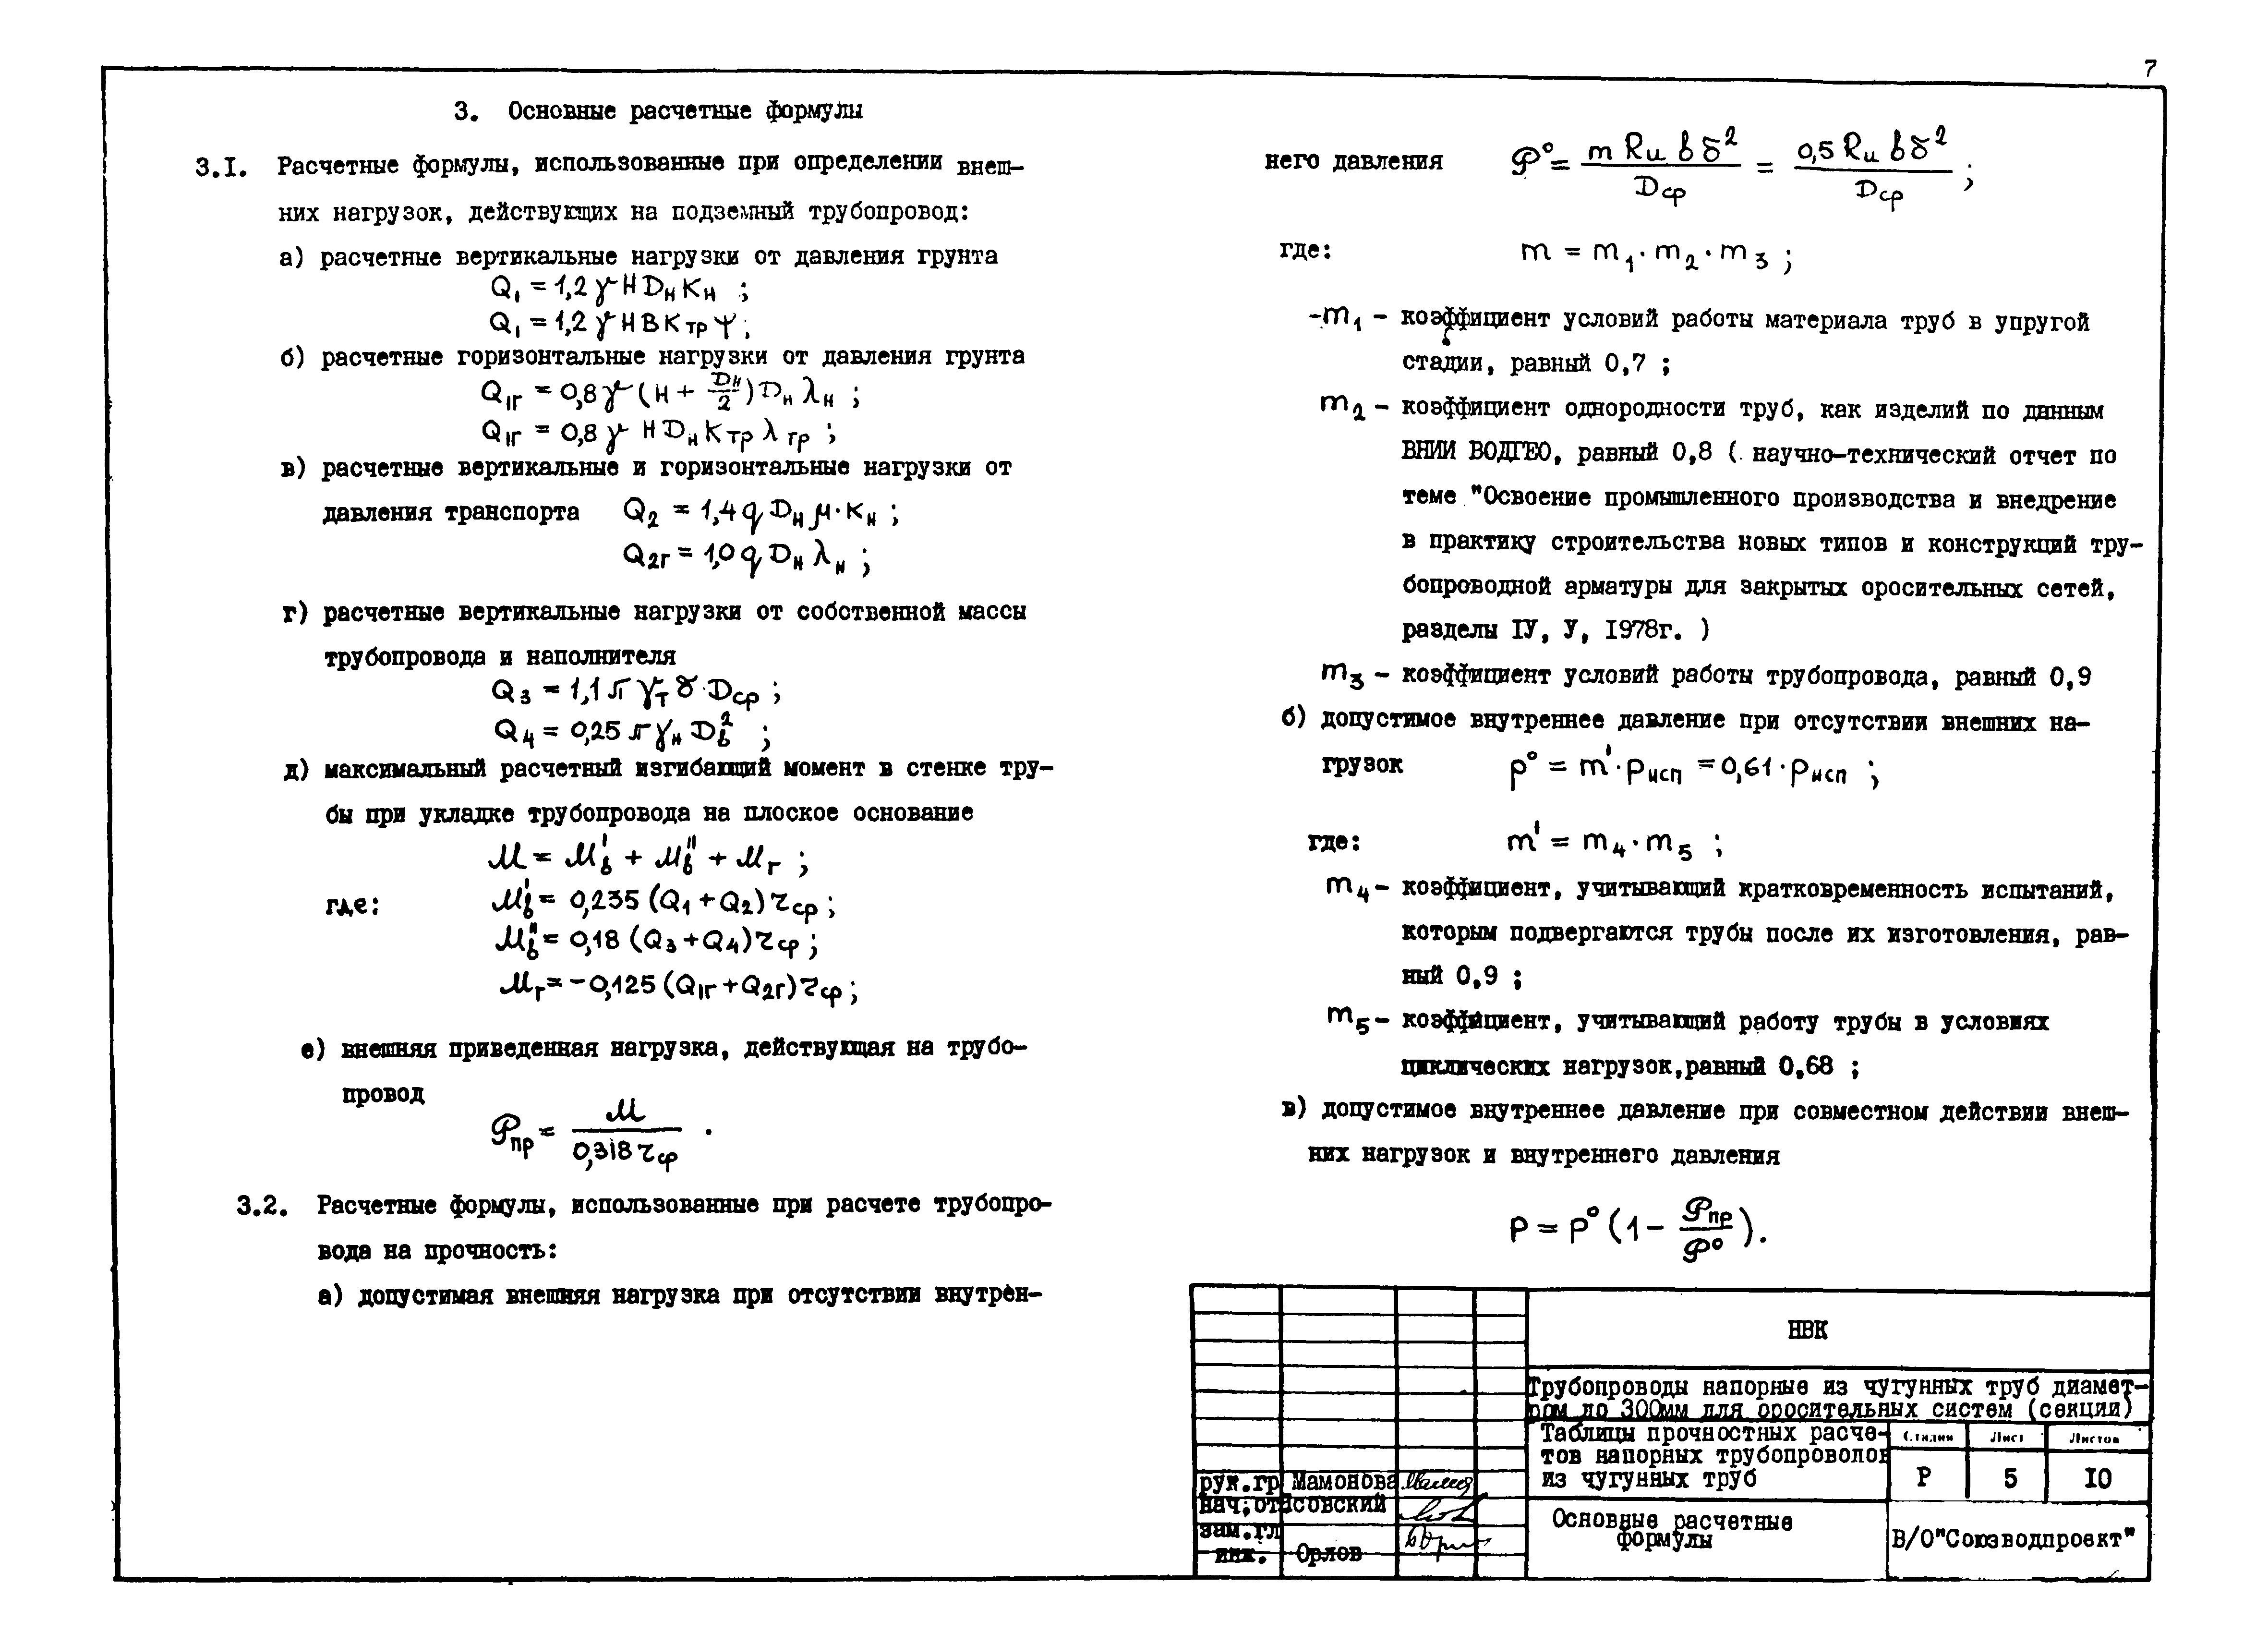 7
3. Основные расчетные формулы
3.I. Расчетные формулы, использованные при определении внеш-
них нагрузок, действующих на подземный трубопровод:
а) расчетные вертикальные нагрузки от давления грунта
Q₁ = 1,2 γ H Dн Kн ;
Q₁ = 1,2 γ H B Kтр Ψ ;
б) расчетные горизонтальные нагрузки от давления грунта
Q₁г = 0,8 γ (H + Dн/2) Dн λн ;
Q₁г = 0,8 γ H Dн Kтр λтр ;
в) расчетные вертикальные и горизонтальные нагрузки от
давления транспорта Q₂ = 1,4 q Dн μ · Kн ;
Q₂г = 1,0 q Dн λн ;
г) расчетные вертикальные нагрузки от собственной массы
трубопровода и наполнителя
Q₃ = 1,1 π γт δ · Dср ;
Q₄ = 0,25 π γн Dв² ;
д) максимальный расчетный изгибающий момент в стенке тру-
бы при укладке трубопровода на плоское основание
M = Mв' + Mв'' + Mг ;
где: Mв' = 0,235 (Q₁ + Q₂) rср ;
Mв'' = 0,18 (Q₃ + Q₄) rср ;
Mг = -0,125 (Q₁г + Q₂г) rср ;
е) внешняя приведенная нагрузка, действующая на трубо-
провод
𝒫пр = M / 0,318 rср .
3.2. Расчетные формулы, использованные при расчете трубопро-
вода на прочность:
а) допустимая внешняя нагрузка при отсутствии внутрен-
него давления 𝒫° = m Rи b δ² / Dср = 0,5 Rи b δ² / Dср ;
где: m = m₁ · m₂ · m₃ ;
-m₁ - коэффициент условий работы материала труб в упругой
стадии, равный 0,7 ;
m₂ - коэффициент однородности труб, как изделий по данным
ВНИИ ВОДГЕО, равный 0,8 ( научно-технический отчет по
теме "Освоение промышленного производства и внедрение
в практику строительства новых типов и конструкций тру-
бопроводной арматуры для закрытых оросительных сетей,
разделы IУ, У, I978г. )
m₃ - коэффициент условий работы трубопровода, равный 0,9
б) допустимое внутреннее давление при отсутствии внешних на-
грузок p° = m' · pисп = 0,61 · pисп ;
где: m' = m₄ · m₅ ;
m₄ - коэффициент, учитывающий кратковременность испытаний,
которым подвергаются трубы после их изготовления, рав-
ный 0,9 ;
m₅ - коэффициент, учитывающий работу трубы в условиях
циклических нагрузок,равный 0,68 ;
в) допустимое внутреннее давление при совместном действии внеш-
них нагрузок и внутреннего давления
P = P° (1 - 𝒫пр / 𝒫°).
НВК
Трубопроводы напорные из чугунных труб диамет-
ром до 300мм для оросительных систем (секции)
Таблицы прочностных расче-
тов напорных трубопроводов
из чугунных труб
Стадия Лист Листов
Р 5 I0
рук.гр Мамонова
нач.от Ясовский
зам.гл
инж. Орлов
Основные расчетные
формулы
В/О"Союзводпроект"